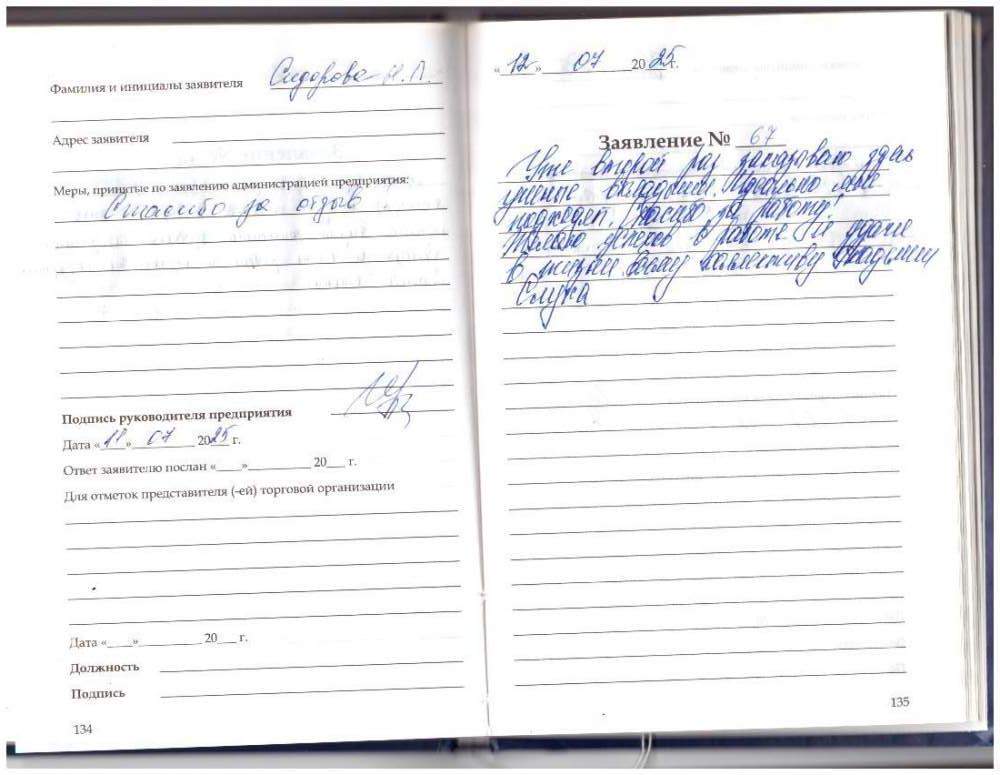 Фамилия и инициалы заявителя Сидорова Н.П.
Адрес заявителя
Меры, принятые по заявлению администрацией предприятия:
Спасибо за отзыв
Подпись руководителя предприятия
Дата «11» 07 2025 г.
Ответ заявителю послан «____»__________ 20___ г.
Для отметок представителя (-ей) торговой организации
Дата «____»__________ 20___ г.
Должность
Подпись
134
«12» 07 2025г.
Заявление № 67
Уже второй раз заказываю здесь
ушные вкладыши. Идеально мне
подходят. Спасибо за работу!
Желаю успехов в работе и удачи
в жизни всему коллективу Академии
Слуха
135